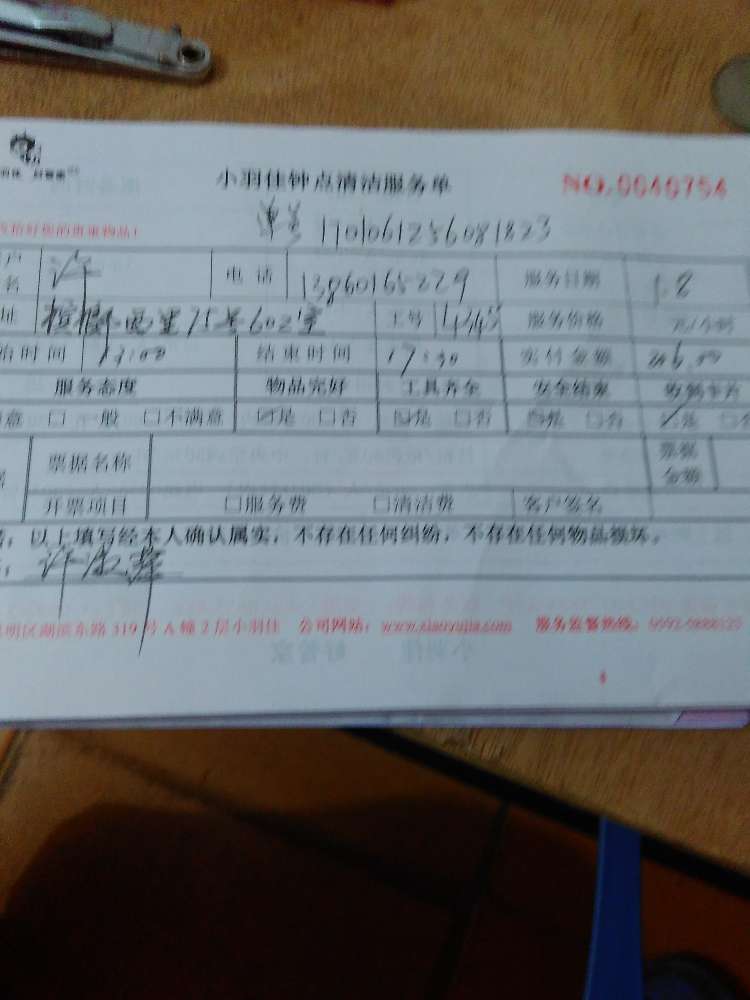 小羽佳钟点清洁服务单 NO.0040754
单号 1701061236081823
许 电话 13860165229 服务日期 1.8
址 槟榔西里75号602室 工号 4345 服务价格 元/小时
始时间 13:00 结束时间 17:30 实付金额
服务态度 物品完好 工具齐全 安全结束
意 □一般 □不满意 ☑是 □否 ☑是 □否 ☑是 □否 ☑是
票据名称 票据金额
开票项目 □服务费 □清洁费 客户签名
以上填写经本人确认属实，不存在任何纠纷，不存在任何物品损坏。
明区湖滨东路319号A幢2层小羽佳 公司网站：www.xiaoyujia.com 服务监督热线：